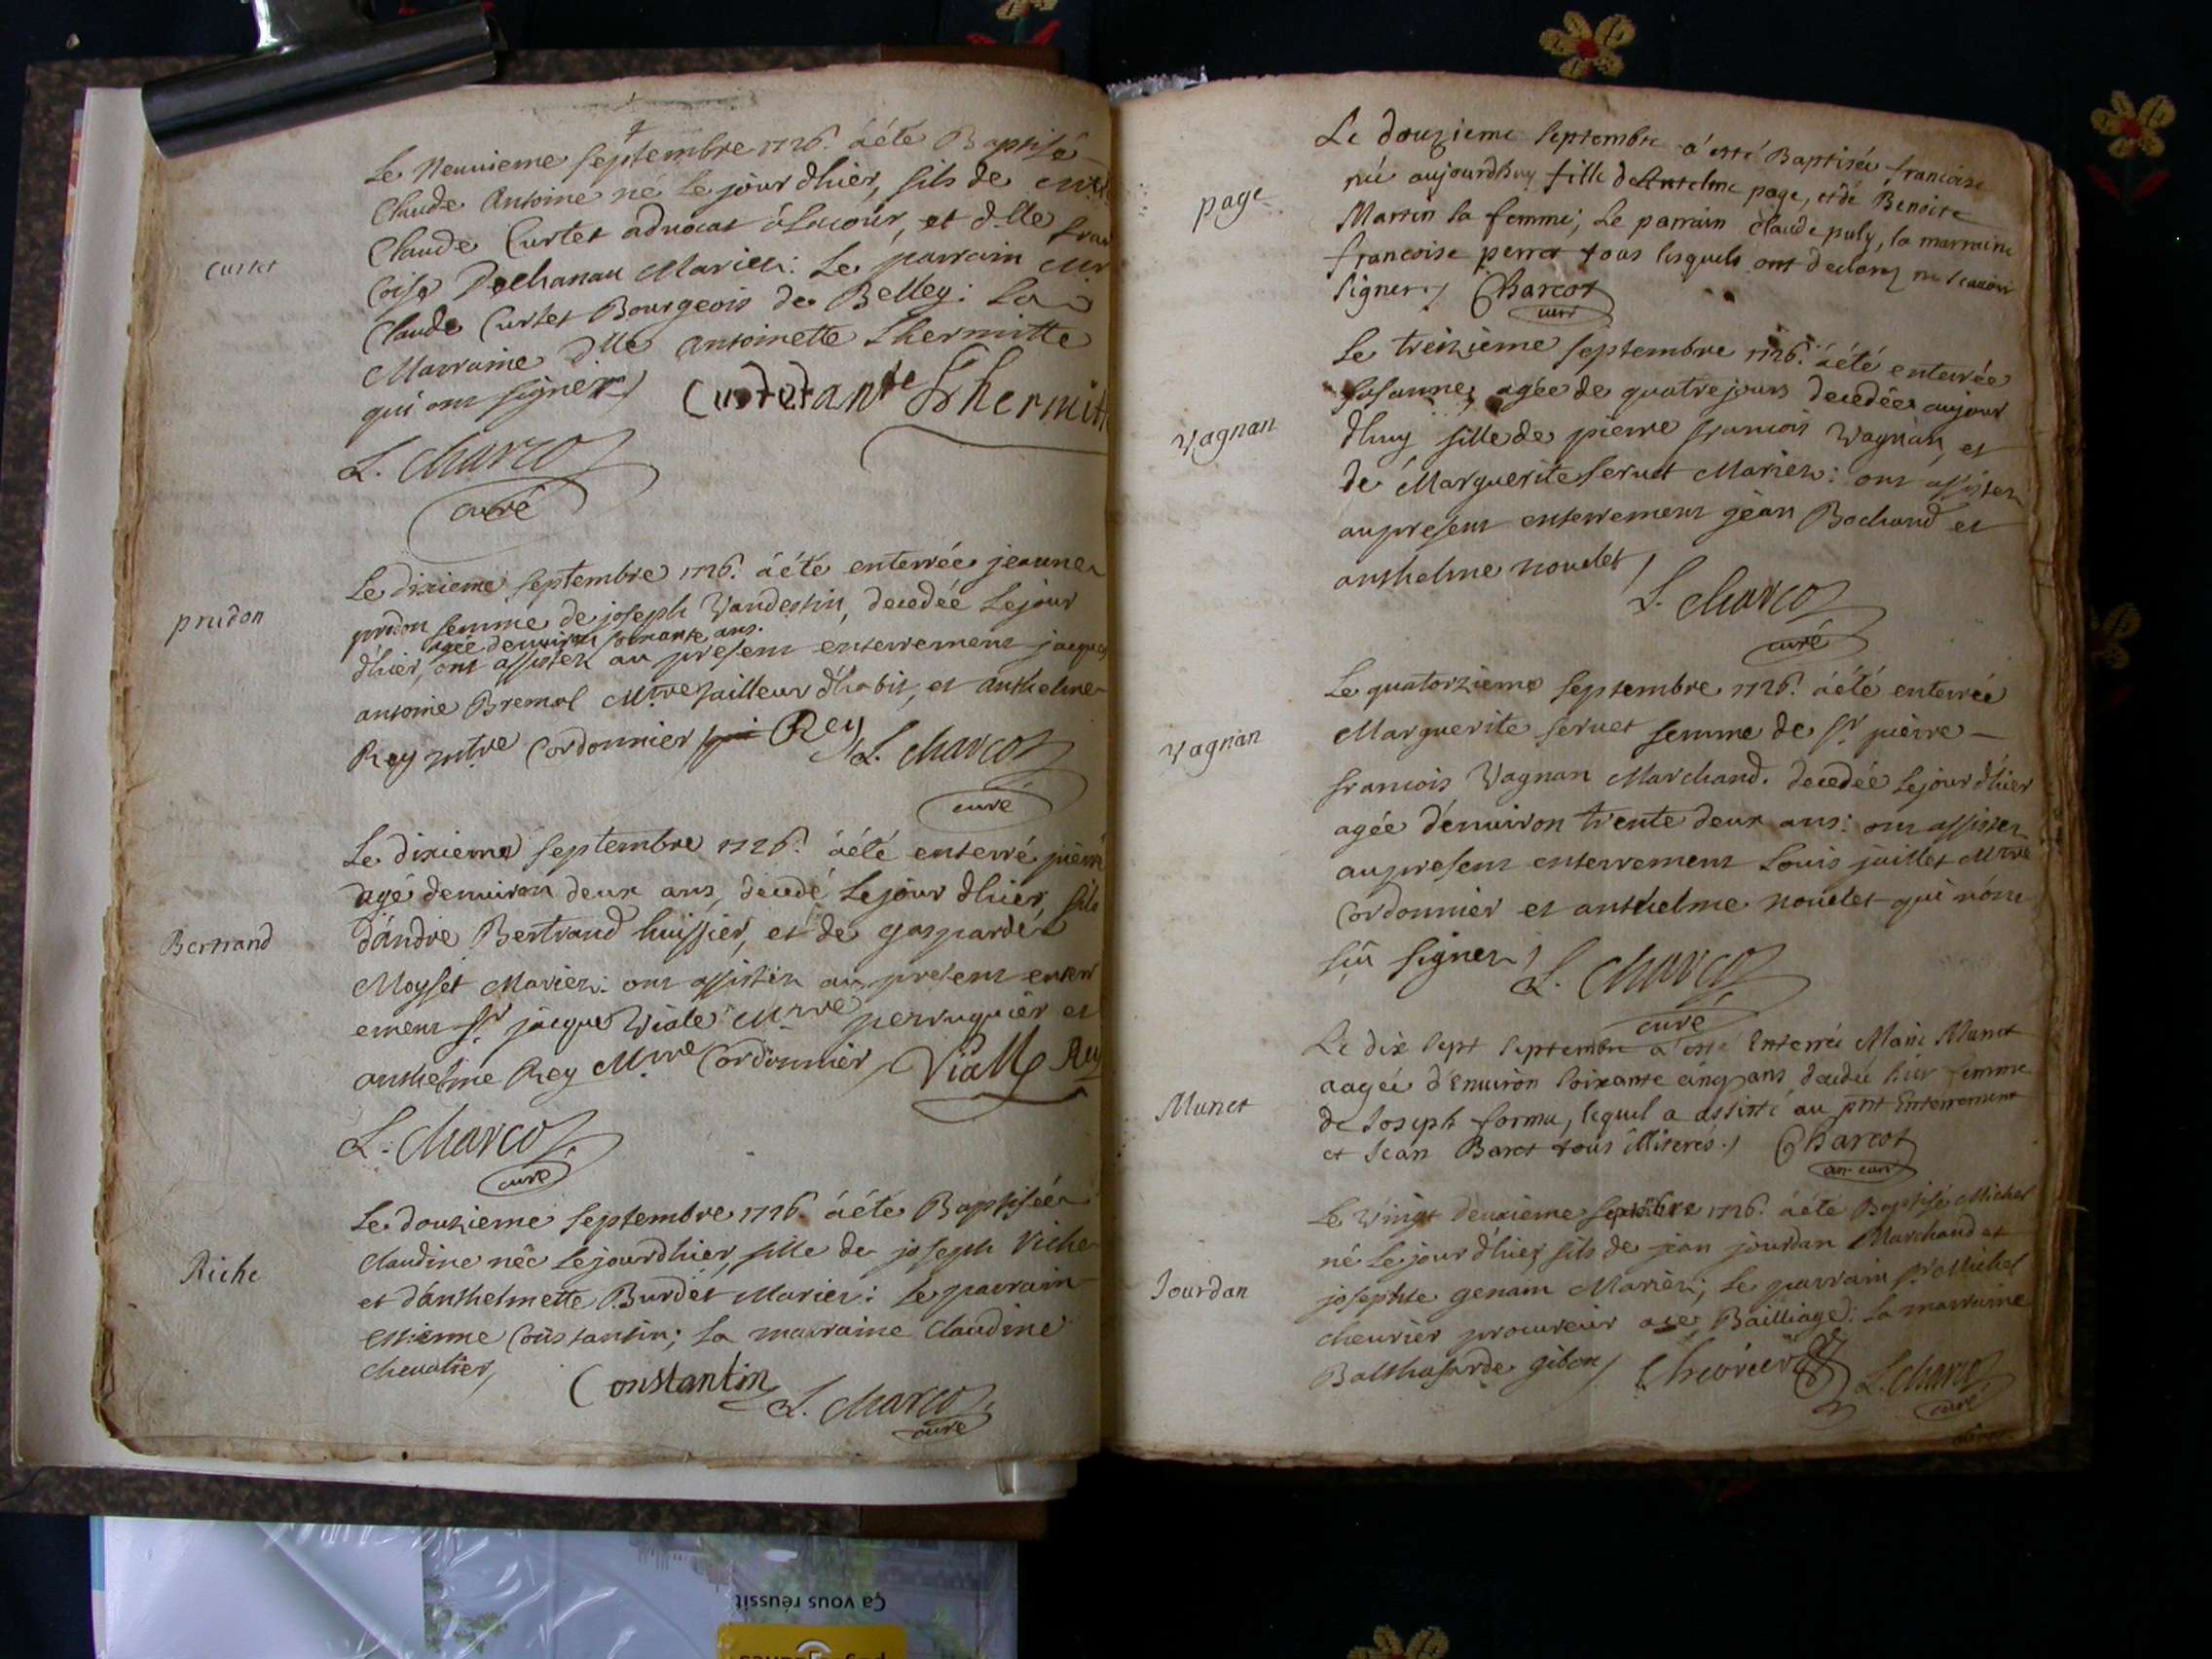 Le Neuuieme septembre 1726. a été Baptisé
Claude Antoine né le jour dhier, fils de
Claude Curtet aduocat á la cour, et dlle fran
Coise Dechanau Mariez: Le parrain
Claude Curtet Bourgeois de Belley: La
Marraine dlle Antoinette Lhermitte
qui ont signez
L. Charcot
curé
Curtet
Le dixieme septembre 1726. a été enterrée jeanne
prudon femme de joseph Vandestin, decedée le jour
agée denuiron soixante ans.
dhier, ont assistez au present enterrement jacques
antoine Bremal Mtre tailleur dhabit, et anthelme
Rey mtre Cordonnier Rey L. Charcot
curé
prudon
Le dixieme septembre 1726. a été enterré pierre
agé denuiron deux ans, decedé le jour dhier, fils
dandré Bertrand huissier, et de gasparde
Moysset Mariez: ont assistez au present enterr
ement Sr jacque Viale Mtre perruquier et
anthelme Rey Mtre Cordonnier Vialle Rey
L. Charcot
curé
Bertrand
Le douzieme septembre 1726. a été Baptisée
Claudine née le jour dhier, fille de joseph Riche
et d'anthelmette Burdet Mariez: Le parrain
estienne Constantin; La marraine Claudine
Cheualier,
Constantin L. Charcot
curé
Riche
Le douzieme Septembre a esté Baptisée francoise
née aujourdhuy fille de Antelme page, et de Benoite
Martin sa femme; Le parrain Claude puly, la marraine
francoise perret tous lesquels ont declaré ne scauoir
signer. Charcot
curé
page
Le treizieme septembre 1726. a été enterrée
Susanne, agée de quatre jours decedée aujour
dhuy fille de pierre francois Vagnan, et
de Marguerite Seruet Mariez: ont assistez
au present enterrement jean Bochand et
anthelme nouelet
L. Charcot
curé
Vagnan
Le quatorzieme septembre 1726. a été enterrée
Marguerite Seruet femme de Sr pierre
francois Vagnan Marchand. decedée le jour dhier
agée denuiron trente deux ans: ont assistez
au present enterrement Louis juillet Mtre
Cordonnier et anthelme nouelet qui nont
sçu signer
L. Charcot
curé
Vagnan
Le dix sept septembre a esté Enterrée Marie Munet
aagée d'Enuiron soixante cinq ans decedée hier femme
de Joseph forma, lequel a assisté au pnt Enterrement
et Jean Baret tous illiterés. Charcot
curé
Munet
Le Vingt deuxieme septembre 1726. a été Baptisé Michel
né le jour dhier, fils de jean jourdan Marchand et
josephte genam Mariez; Le parrain Sr Michel
cheurier procureur Bailliage: La marraine
Balthasarde gibon Cheurier L. Charcot
curé
Jourdan
Ça vous réussit